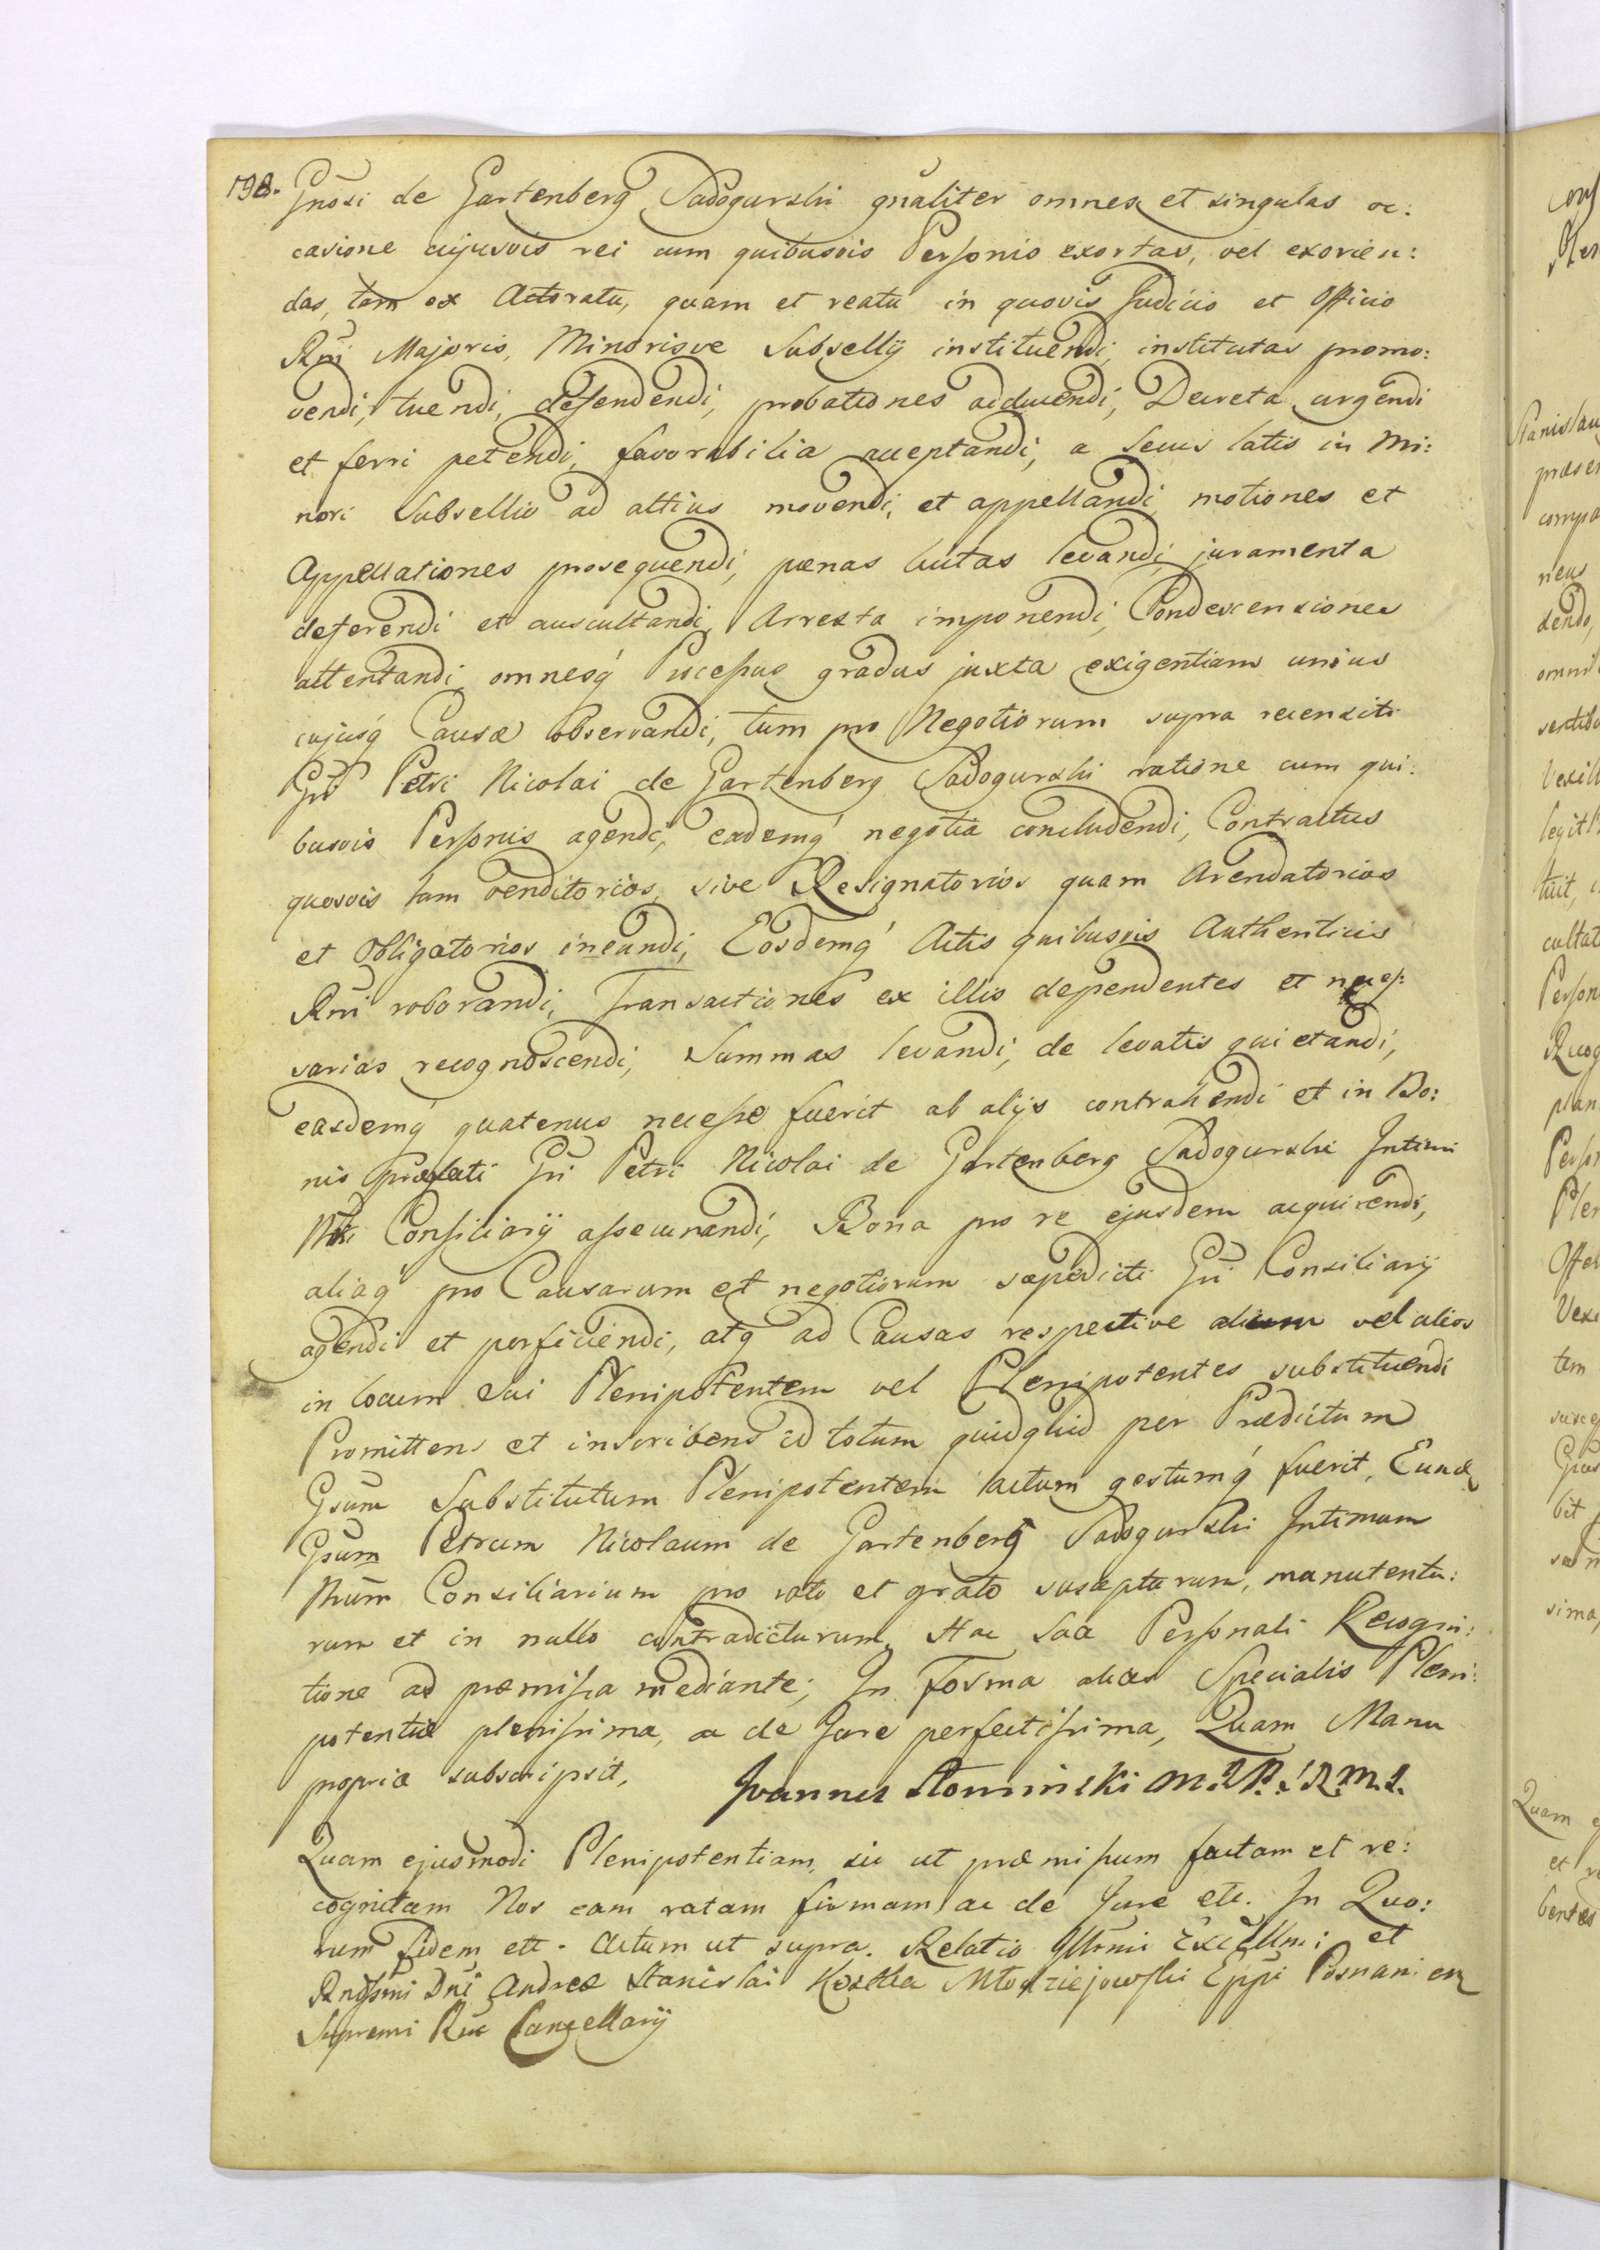 198. Gnosi de Gartenberg Sadogurski gnaliter omnes et singulas oc:
casione cujusvis rei cum quibusvis Personis exortas, vel exorien:
das, tam ex Actoratu, quam et reatu in quovis Judicio et Officio
Rni Majoris, Minorisve Subsellij instituendi, institutas promo:
vendi, tuendi, defendendi, probationes adducendi, Decreta urgendi
et ferri petendi, favorabilia acceptandi, a secus latis in Mi:
nori Subsellio ad altius movendi, et appellandi, motiones et
Appellationes prosequendi, pænas luitas levandi, juramenta
deferendi et auscultandi, Arresta imponendi, Condescensiones
attentandi, omnesq́ Processus gradus juxta exigentiam unius
cujusq́ Causæ observandi, tum pro Negotiorum supra recensiti
Gni Petri Nicolai de Gartenberg Sadogurski ratione cum qui:
busvis Personis agendi, eademq́ negotia concludendi, Contractus
quosvis tam venditorios, sive Resignatorios quam Arendatorios
et Obligatorios ineundi, Eosdemq́ Actis quibusvis Authenticis
Rni roborandi, Transactiones ex illis dependentes et neces:
sarias recognoscendi, Summas levandi, de levatis quietandi,
easdemq́ quatenus necesse fuerit ab alijs contrahendi et in Bo:
nis præfati Gni Petri Nicolai de Gartenberg Sadogurski Intimi
Nri Consiliarij assecurandi, Bona pro re ejusdem acquirendi,
aliaq́ pro Causarum et negotiorum sæpedicti Gni Consiliarij
agendi et perficiendi, atq́ ad Causas respective alium vel alios
in locum sui Plenipotentem vel Plenipotentes substituendi
Promittens et inscribens id totum quidquid per Prædictum
Gsum Substitutum Plenipotentem actum gestumq́ fuerit, Eund
Gsum Petrum Nicolaum de Gartenberg Sadogurski Intimum
Nrum Consiliarium pro rato et grato suscepturum, manutentu:
rum et in nullo contradicturum, Hac sua Personali Recogni:
tione ad præmissa mediante; In Forma alias Specialis Pleni:
potentiæ plenissima, ac de Jure perfectissima, Quam Manu
propria subscripsit, Joannes Słomiński M.J.P.S.R.M.S.
Quam ejusmodi Plenipotentiam, sic ut præmissum factam et re:
cognitam Nos eam ratam firmam ac de Jure etc. In Quo:
rum fidem ett. Actum ut supra. Relatio Illrmi Excellmi et
Rndssmi Dni Andreæ Stanislai Kostka Młodziejowski Eppi Posnanien
Supremi Rni Cancellarij